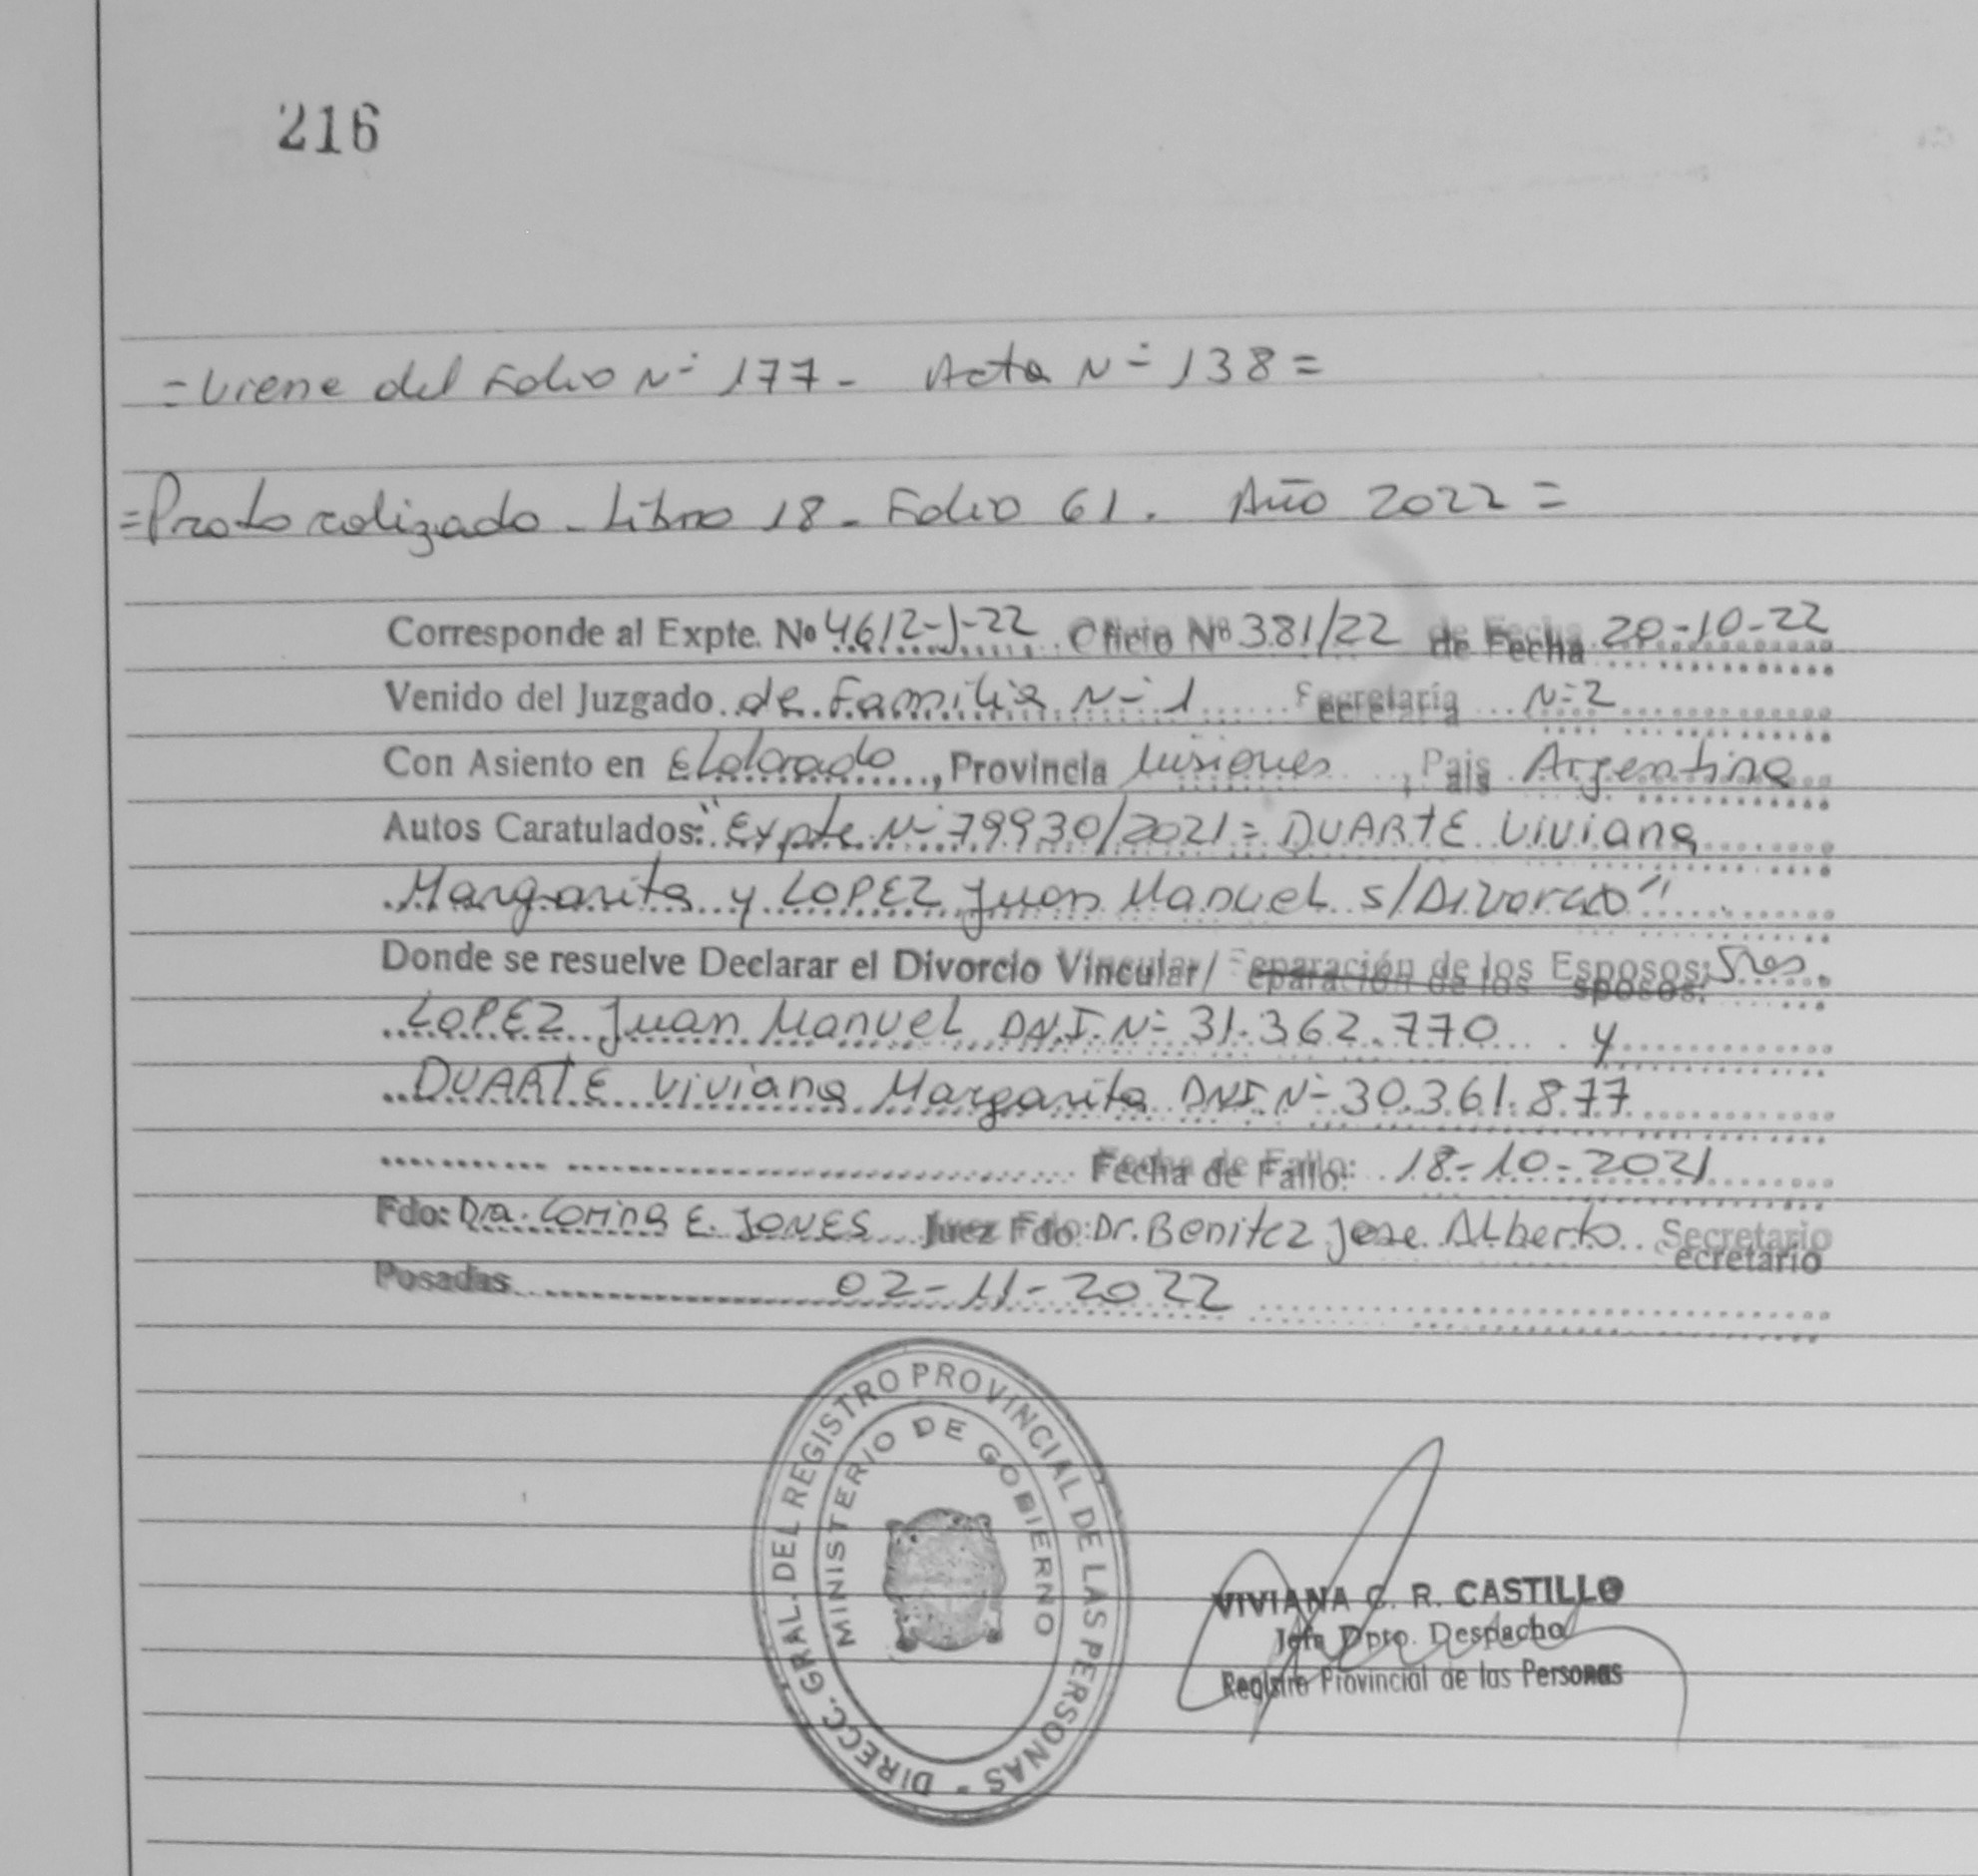 216
=Viene del Folio Nº 177- Acta Nº 138=
=Protocolizado - Libro 18 - Folio 61. Año 2022=
Corresponde al Expte. Nº 4612-J-22 Oficio Nº 381/22 de Fecha 20-10-22
Venido del Juzgado de Familia Nº 1 Secretaría Nº 2
Con Asiento en Eldorado, Provincia Misiones, Pais Argentina
Autos Caratulados: "Expte Nº 79930/2021= DUARTE Viviana
Margarita y LOPEZ Juan Manuel s/Divorcio"
Donde se resuelve Declarar el Divorcio Vincular/ Separación de los Esposos: Sres.
LOPEZ Juan Manuel DNI. Nº 31.362.770 y
DUARTE Viviana Margarita DNI Nº 30.361.877
Fecha de Fallo: 18-10-2021
Fdo: Dra. Corina E. JONES Juez Fdo: Dr. Benitez Jose Alberto Secretario
Posadas 02-11-2022
DIRECC. GRAL. DEL REGISTRO PROVINCIAL DE LAS PERSONAS -
MINISTERIO DE GOBIERNO
VIVIANA C. R. CASTILLO
Jefa Dpto. Despacho
Registro Provincial de las Personas